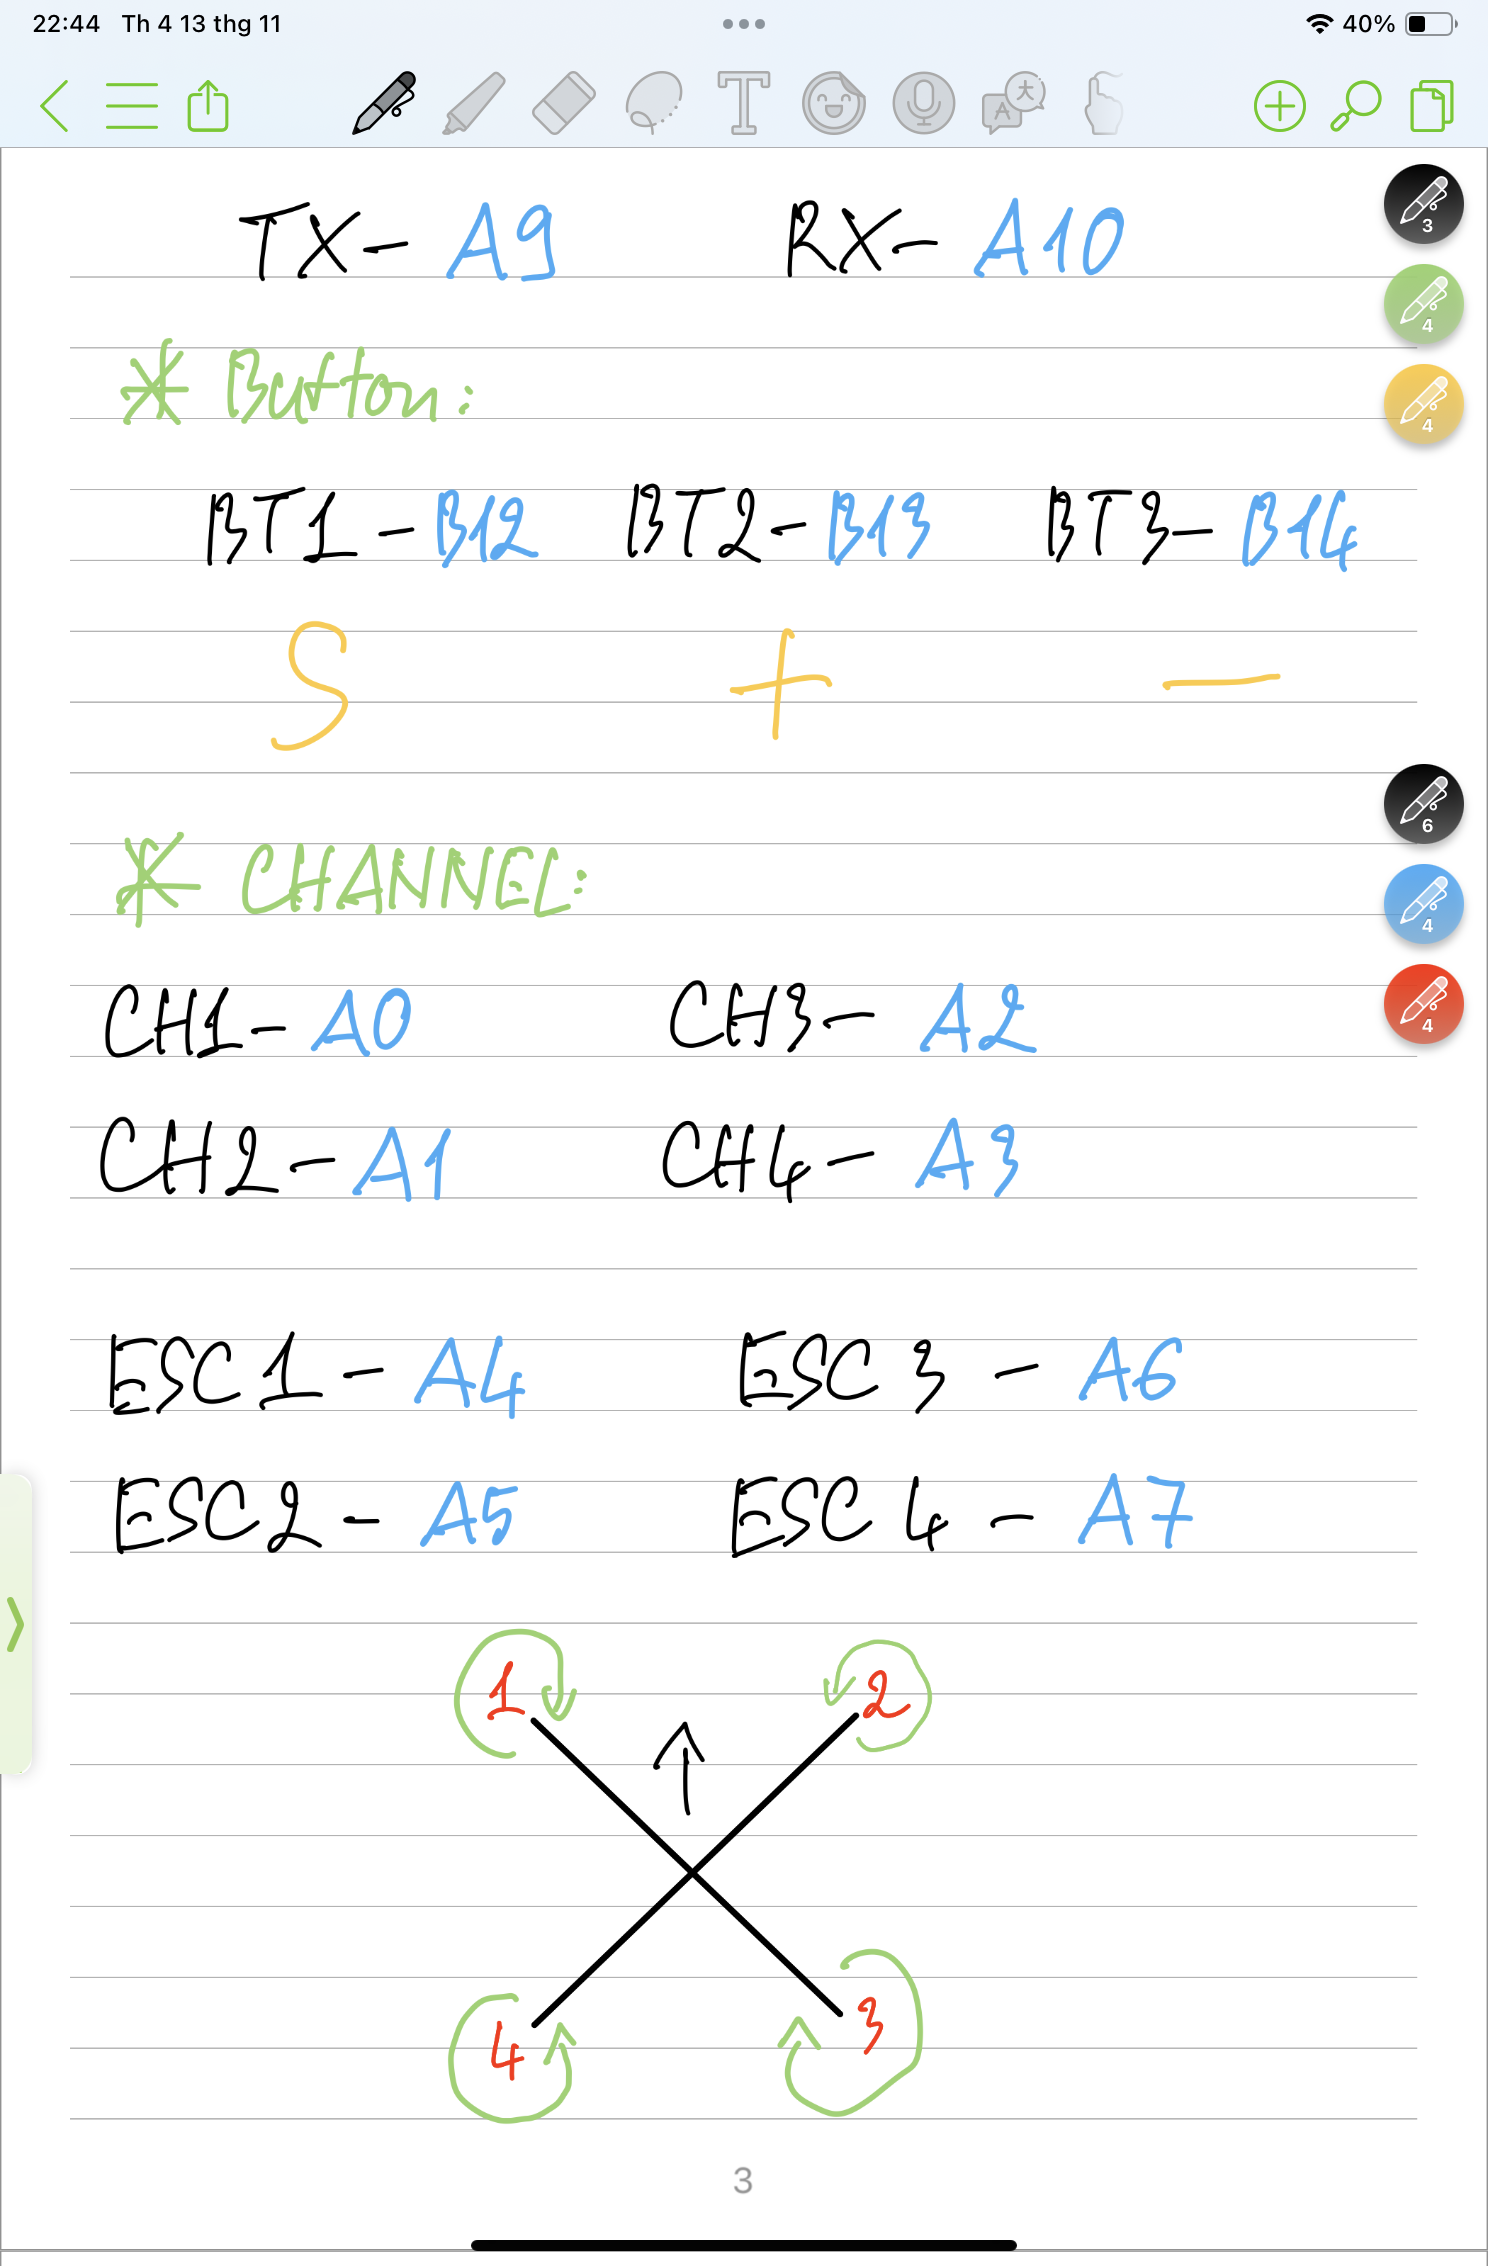 22:44 Th 4 13 thg 11 40%
TX- A9 RX- A10
* Button:
BT1 - B12 BT2 - B13 BT3 - B14
S + -
* CHANNEL:
CH1 - A0 CH3 - A2
CH2 - A1 CH4 - A3
ESC1 - A4 ESC3 - A6
ESC2 - A5 ESC4 - A7
1 2
4 3
3
3
4
4
6
4
4